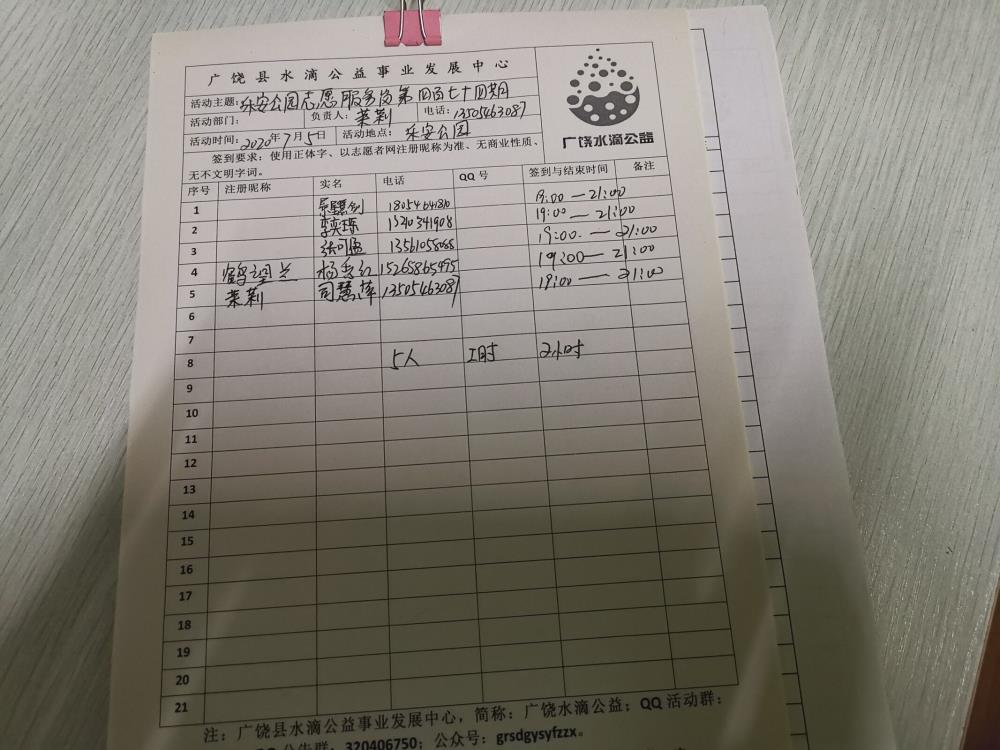 广饶县水滴公益事业发展中心
活动主题:乐安公园志愿服务岗第四百七十四期
活动部门: 负责人:茉莉 电话:13505463087
活动时间:2020年7月5日 活动地点:乐安公园
签到要求:使用正体字、以志愿者网注册昵称为准、无商业性质、
无不文明字词。
广饶水滴公益
序号 注册昵称 实名 电话 QQ号 签到与结束时间 备注
1 19:00—21:00
2 19:00—21:00
3 19:00—21:00
4 鹤望兰 15265865495 19:00—21:00
5 茉莉 司慧萍 13505463087 19:00—21:00
6
7
8 5人 工时 2小时
9
10
11
12
13
14
15
16
17
18
19
20
21
注:广饶县水滴公益事业发展中心,简称:广饶水滴公益;QQ活动群:
公告群:320406750;公众号:grsdgysyfzzx。